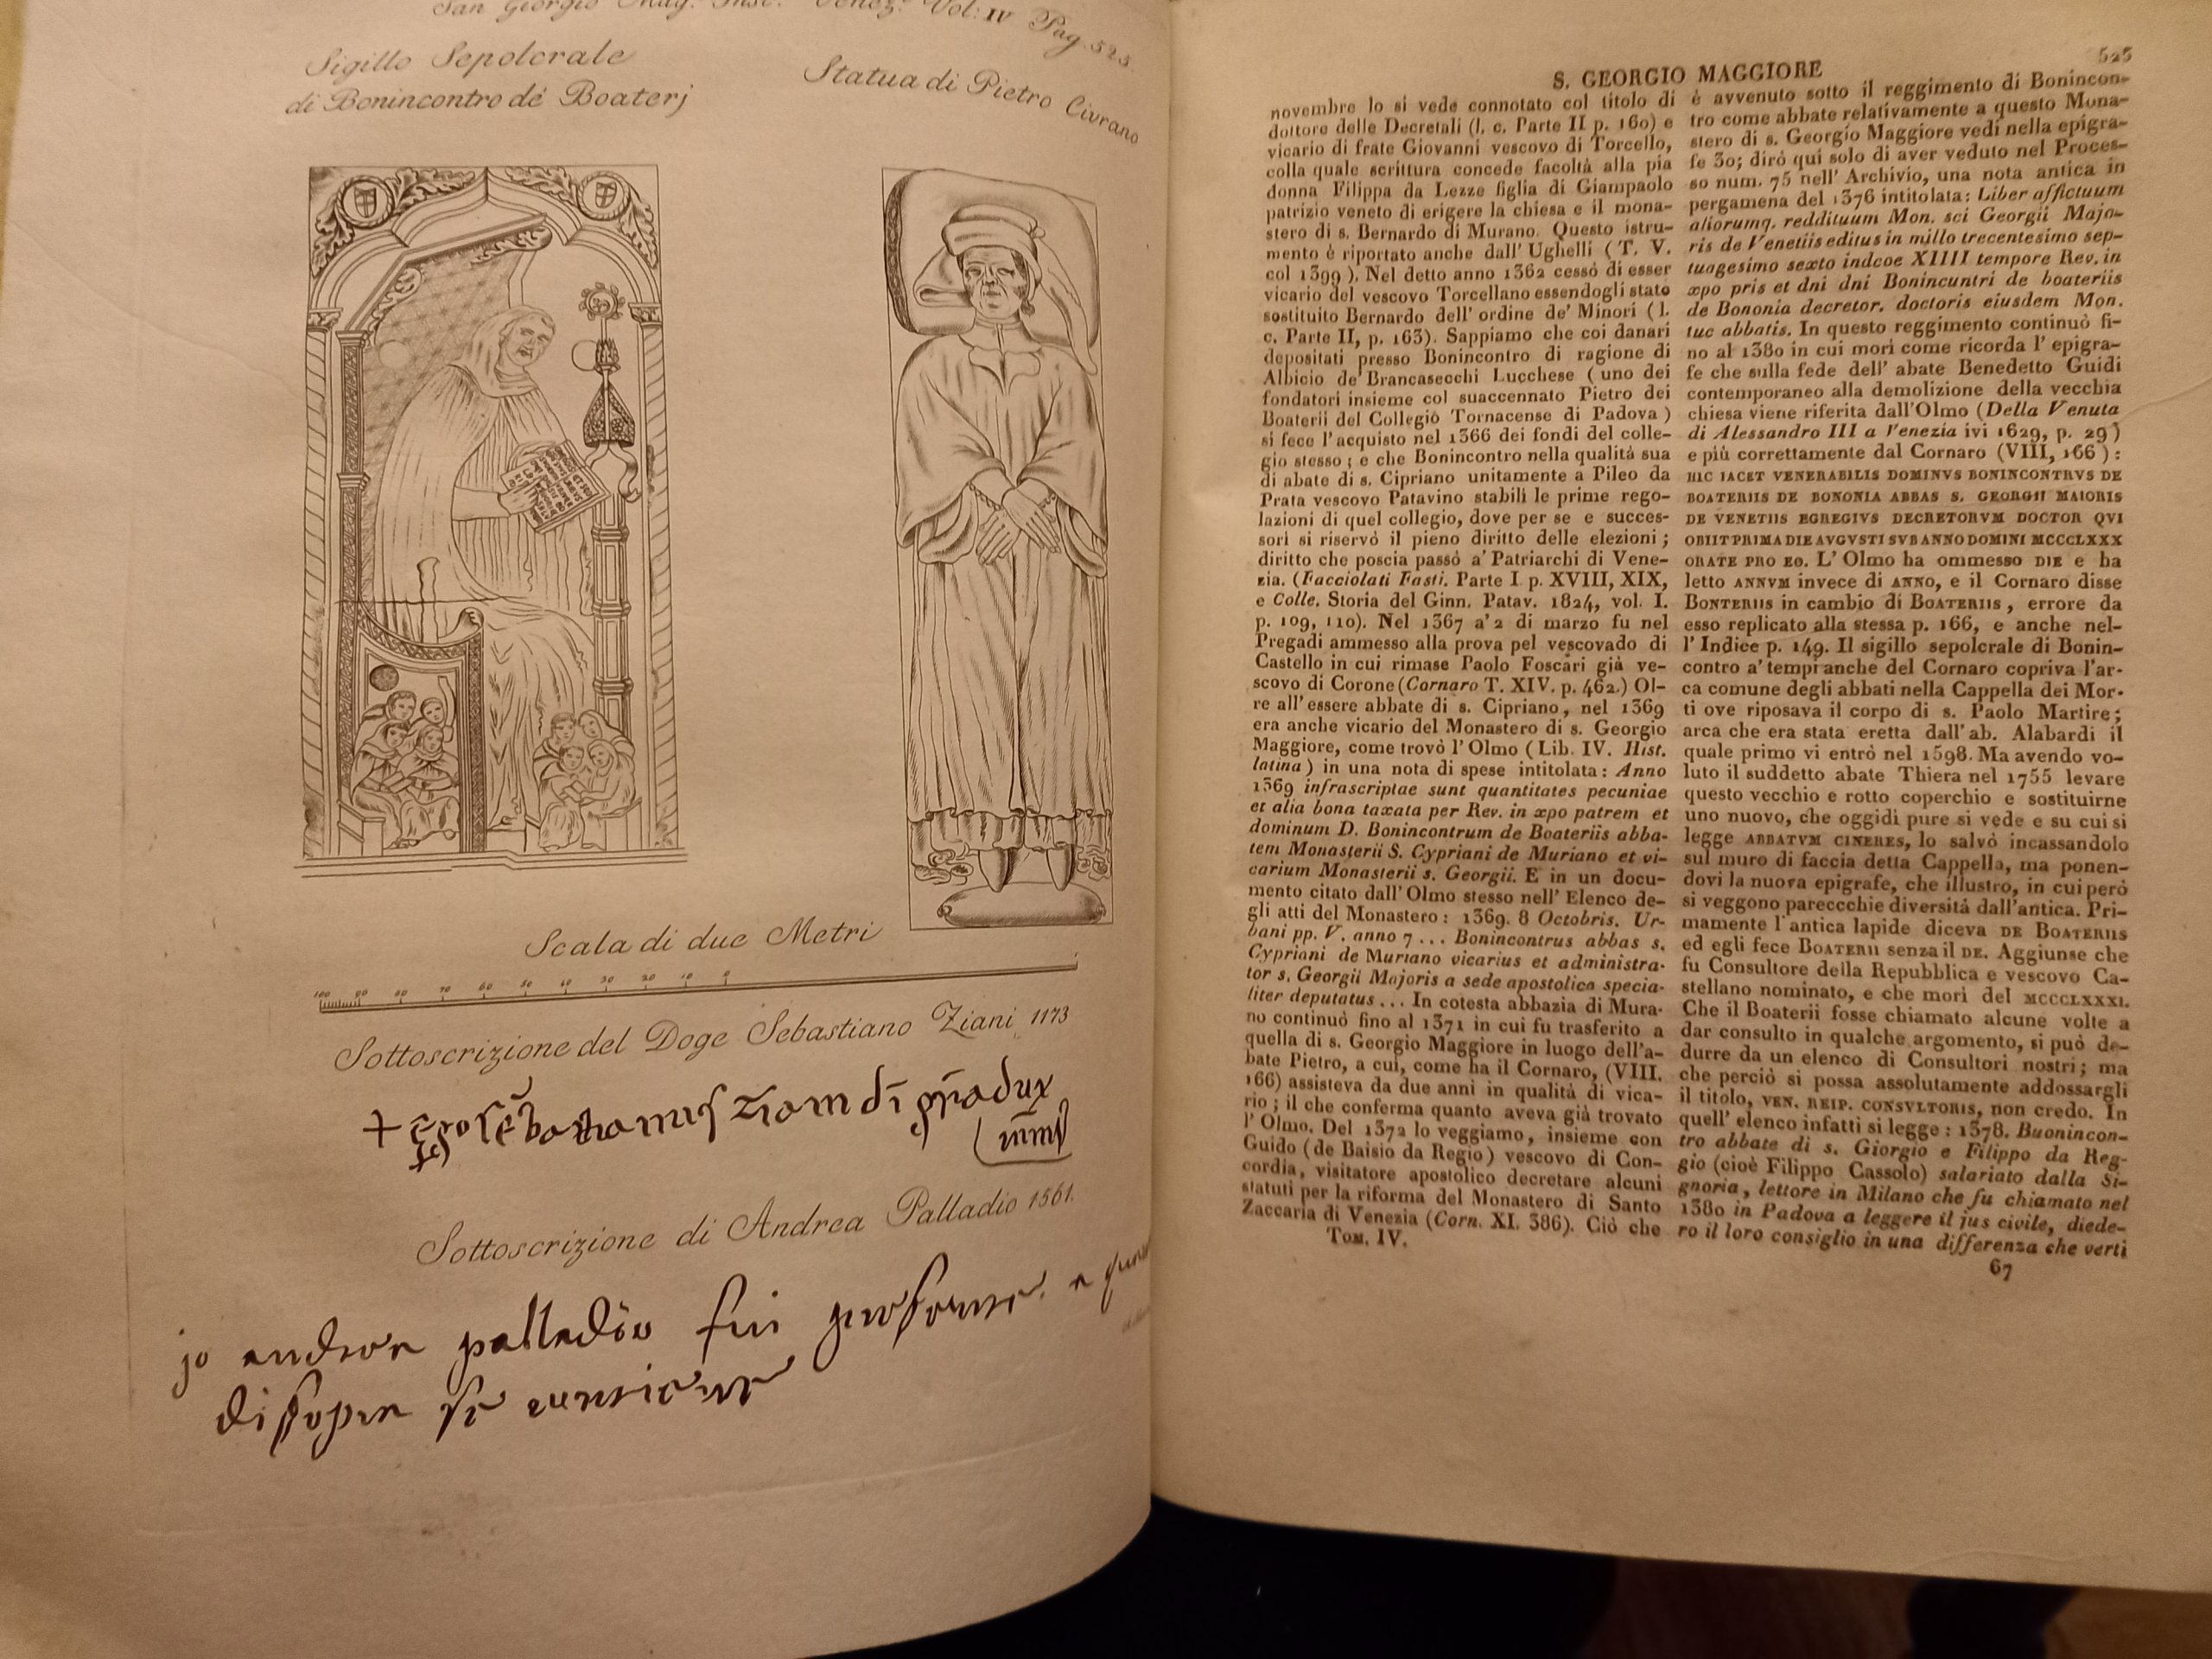 San Giorgio Mag. Inscr. Venez.e Vol: IV Pag. 525.
Sigillo Sepolcrale
di Bonincontro dé Boaterj
Statua di Pietro Civrano
Scala di due Metri
100 90 80 70 60 50 40 30 20 10 0 1
Sottoscrizione del Doge Sebastiano Ziani 1173
Sottoscrizione di Andrea Palladio 1561.
jo andrea palladio fui presente a
di sopra
525
S. GEORGIO MAGGIORE
novembre lo si vede connotato col titolo di
dottore delle Decretali (l. c. Parte II p. 160) e
vicario di frate Giovanni vescovo di Torcello,
colla quale scrittura concede facoltà alla pia
donna Filippa da Lezze figlia di Giampaolo
patrizio veneto di erigere la chiesa e il mona-
stero di s. Bernardo di Murano. Questo istru-
mento è riportato anche dall' Ughelli (T. V.
col 1399). Nel detto anno 1362 cessò di esser
vicario del vescovo Torcellano essendogli stato
sostituito Bernardo dell' ordine de' Minori (l.
c. Parte II, p. 163). Sappiamo che coi danari
depositati presso Bonincontro di ragione di
Albicio de' Brancasecchi Lucchese (uno dei
fondatori insieme col suaccennato Pietro dei
Boaterii del Collegio Tornacense di Padova)
si fece l'acquisto nel 1366 dei fondi del colle-
gio stesso; e che Bonincontro nella qualità sua
di abate di s. Cipriano unitamente a Pileo da
Prata vescovo Patavino stabilì le prime rego-
lazioni di quel collegio, dove per se e succes-
sori si riservò il pieno diritto delle elezioni;
diritto che poscia passò a' Patriarchi di Vene-
zia. (Facciolati Fasti. Parte I. p. XVIII, XIX,
e Colle. Storia del Ginn. Patav. 1824, vol. I.
p. 109, 110). Nel 1367 a' 2 di marzo fu nel
Pregadi ammesso alla prova pel vescovado di
Castello in cui rimase Paolo Foscari già ve-
scovo di Corone (Cornaro T. XIV. p. 462.) Ol-
re all' essere abbate di s. Cipriano, nel 1369
era anche vicario del Monastero di s. Georgio
Maggiore, come trovò l' Olmo (Lib. IV. Hist.
latina) in una nota di spese intitolata: Anno
1369 infrascriptae sunt quantitates pecuniae
et alia bona taxata per Rev. in xpo patrem et
dominum D. Bonincontrum de Boateriis abba-
tem Monasterii S. Cypriani de Muriano et vi-
carium Monasterii s. Georgii. E in un docu-
mento citato dall' Olmo stesso nell' Elenco de-
gli atti del Monastero: 1369. 8 Octobris. Ur-
bani pp. V. anno 7 ... Bonincontrus abbas s.
Cypriani de Muriano vicarius et administra-
tor s. Georgii Majoris a sede apostolica specia-
liter deputatus ... In cotesta abbazia di Mura-
no continuò fino al 1371 in cui fu trasferito a
quella di s. Georgio Maggiore in luogo dell'a-
bate Pietro, a cui, come ha il Cornaro, (VIII.
166) assisteva da due anni in qualità di vica-
rio; il che conferma quanto aveva già trovato
l' Olmo. Del 1372 lo veggiamo, insieme con
Guido (de Baisio da Regio) vescovo di Con-
cordia, visitatore apostolico decretare alcuni
statuti per la riforma del Monastero di Santo
Zaccaria di Venezia (Corn. XI. 386). Ciò che
Tom. IV.
è avvenuto sotto il reggimento di Bonincon-
tro come abbate relativamente a questo Mona-
stero di s. Georgio Maggiore vedi nella epigra-
fe 30; dirò qui solo di aver veduto nel Proces-
so num. 75 nell' Archivio, una nota antica in
pergamena del 1376 intitolata: Liber affictuum
aliorumq. reddituum Mon. sci Georgii Majo-
ris de Venetiis editus in millo trecentesimo sep-
tuagesimo sexto indcoe XIIII tempore Rev. in
xpo pris et dni dni Bonincuntri de boateriis
de Bononia decretor. doctoris eiusdem Mon.
tuc abbatis. In questo reggimento continuò fi-
no al 1380 in cui morì come ricorda l' epigra-
fe che sulla fede dell' abate Benedetto Guidi
contemporaneo alla demolizione della vecchia
chiesa viene riferita dall'Olmo (Della Venuta
di Alessandro III a Venezia ivi 1629, p. 29)
e più correttamente dal Cornaro (VIII, 166):
HIC IACET VENERABILIS DOMINVS BONINCONTRVS DE
BOATERIIS DE BONONIA ABBAS S. GEORGII MAIORIS
DE VENETIIS EGREGIVS DECRETORVM DOCTOR QVI
OBIIT PRIMA DIE AVGVSTI SVB ANNO DOMINI MCCCLXXX
ORATE PRO EO. L' Olmo ha ommesso DIE e ha
letto ANNVM invece di ANNO, e il Cornaro disse
BONTERIIS in cambio di BOATERIIS, errore da
esso replicato alla stessa p. 166, e anche nel-
l' Indice p. 149. Il sigillo sepolcrale di Bonin-
contro a' tempi anche del Cornaro copriva l'ar-
ca comune degli abbati nella Cappella dei Mor-
ti ove riposava il corpo di s. Paolo Martire;
arca che era stata eretta dall'ab. Alabardi il
quale primo vi entrò nel 1598. Ma avendo vo-
luto il suddetto abate Thiera nel 1755 levare
questo vecchio e rotto coperchio e sostituirne
uno nuovo, che oggidì pure si vede e su cui si
legge ABBATVM CINERES, lo salvò incassandolo
sul muro di faccia detta Cappella, ma ponen-
dovi la nuova epigrafe, che illustro, in cui però
si veggono pareccchie diversità dall'antica. Pri-
mamente l'antica lapide diceva DE BOATERIIS
ed egli fece BOATERII senza il DE. Aggiunse che
fu Consultore della Repubblica e vescovo Ca-
stellano nominato, e che morì del MCCCLXXXI.
Che il Boaterii fosse chiamato alcune volte a
dar consulto in qualche argomento, si può de-
durre da un elenco di Consultori nostri; ma
che perciò si possa assolutamente addossargli
il titolo, VEN. REIP. CONSVLTORIS, non credo. In
quell' elenco infatti si legge: 1378. Buonincon-
tro abbate di s. Giorgio e Filippo da Reg-
gio (cioè Filippo Cassolo) salariato dalla Si-
gnoria, lettore in Milano che fu chiamato nel
1380 in Padova a leggere il jus civile, diede-
ro il loro consiglio in una differenza che vertì
67